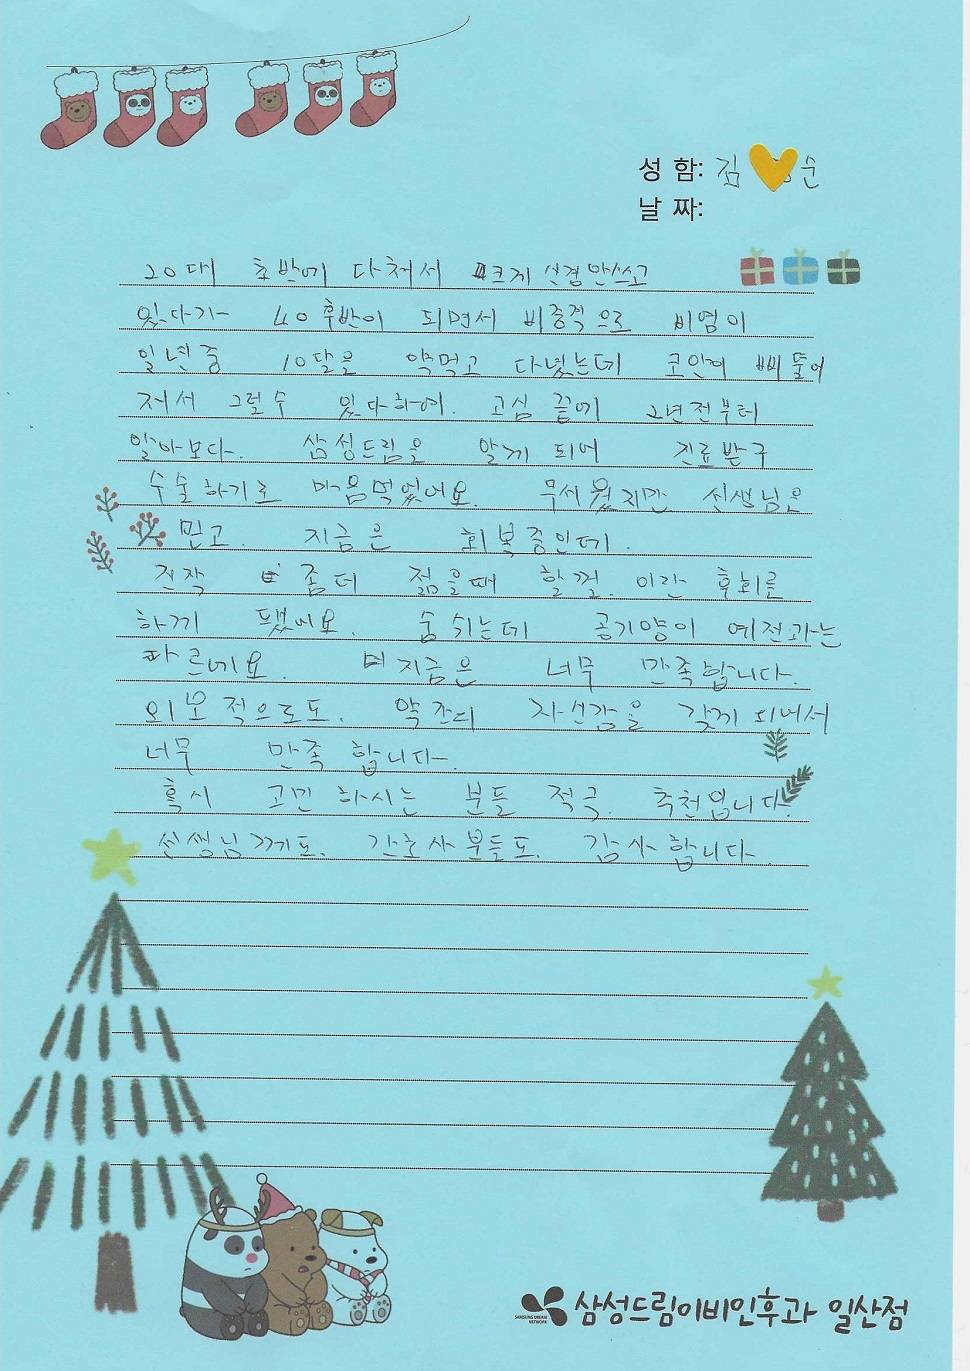 성 함: 김 순
날 짜:
20대 초반에 다쳐서 크게 신경안쓰고
있다가 40후반이 되면서 비중격으로 비염이
일년중 10달을 약먹고 다녔는데 코안이 삐뚤어
져서 그럴수 있다하여. 고심 끝에 2년전부터
알아보다. 삼성드림을 알게 되어 진료받구
수술하기로 마음먹었어요. 무서웠지만 선생님을
믿고. 지금은 회복중인데.
진작 좀더 젊을때 할껄. 이란 후회를
하게 됐어요. 숨쉬는데 공기양이 예전과는
따르네요. 지금은 너무 만족합니다.
외모적으로도. 약간의 자신감을 갖게 되어서
너무 만족 합니다.
혹시 고민 하시는 분들 적극. 추천입니다.
선생님께도. 간호사분들도. 감사합니다.
SAMSUNG DREAM
NETWORK
삼성드림이비인후과 일산점